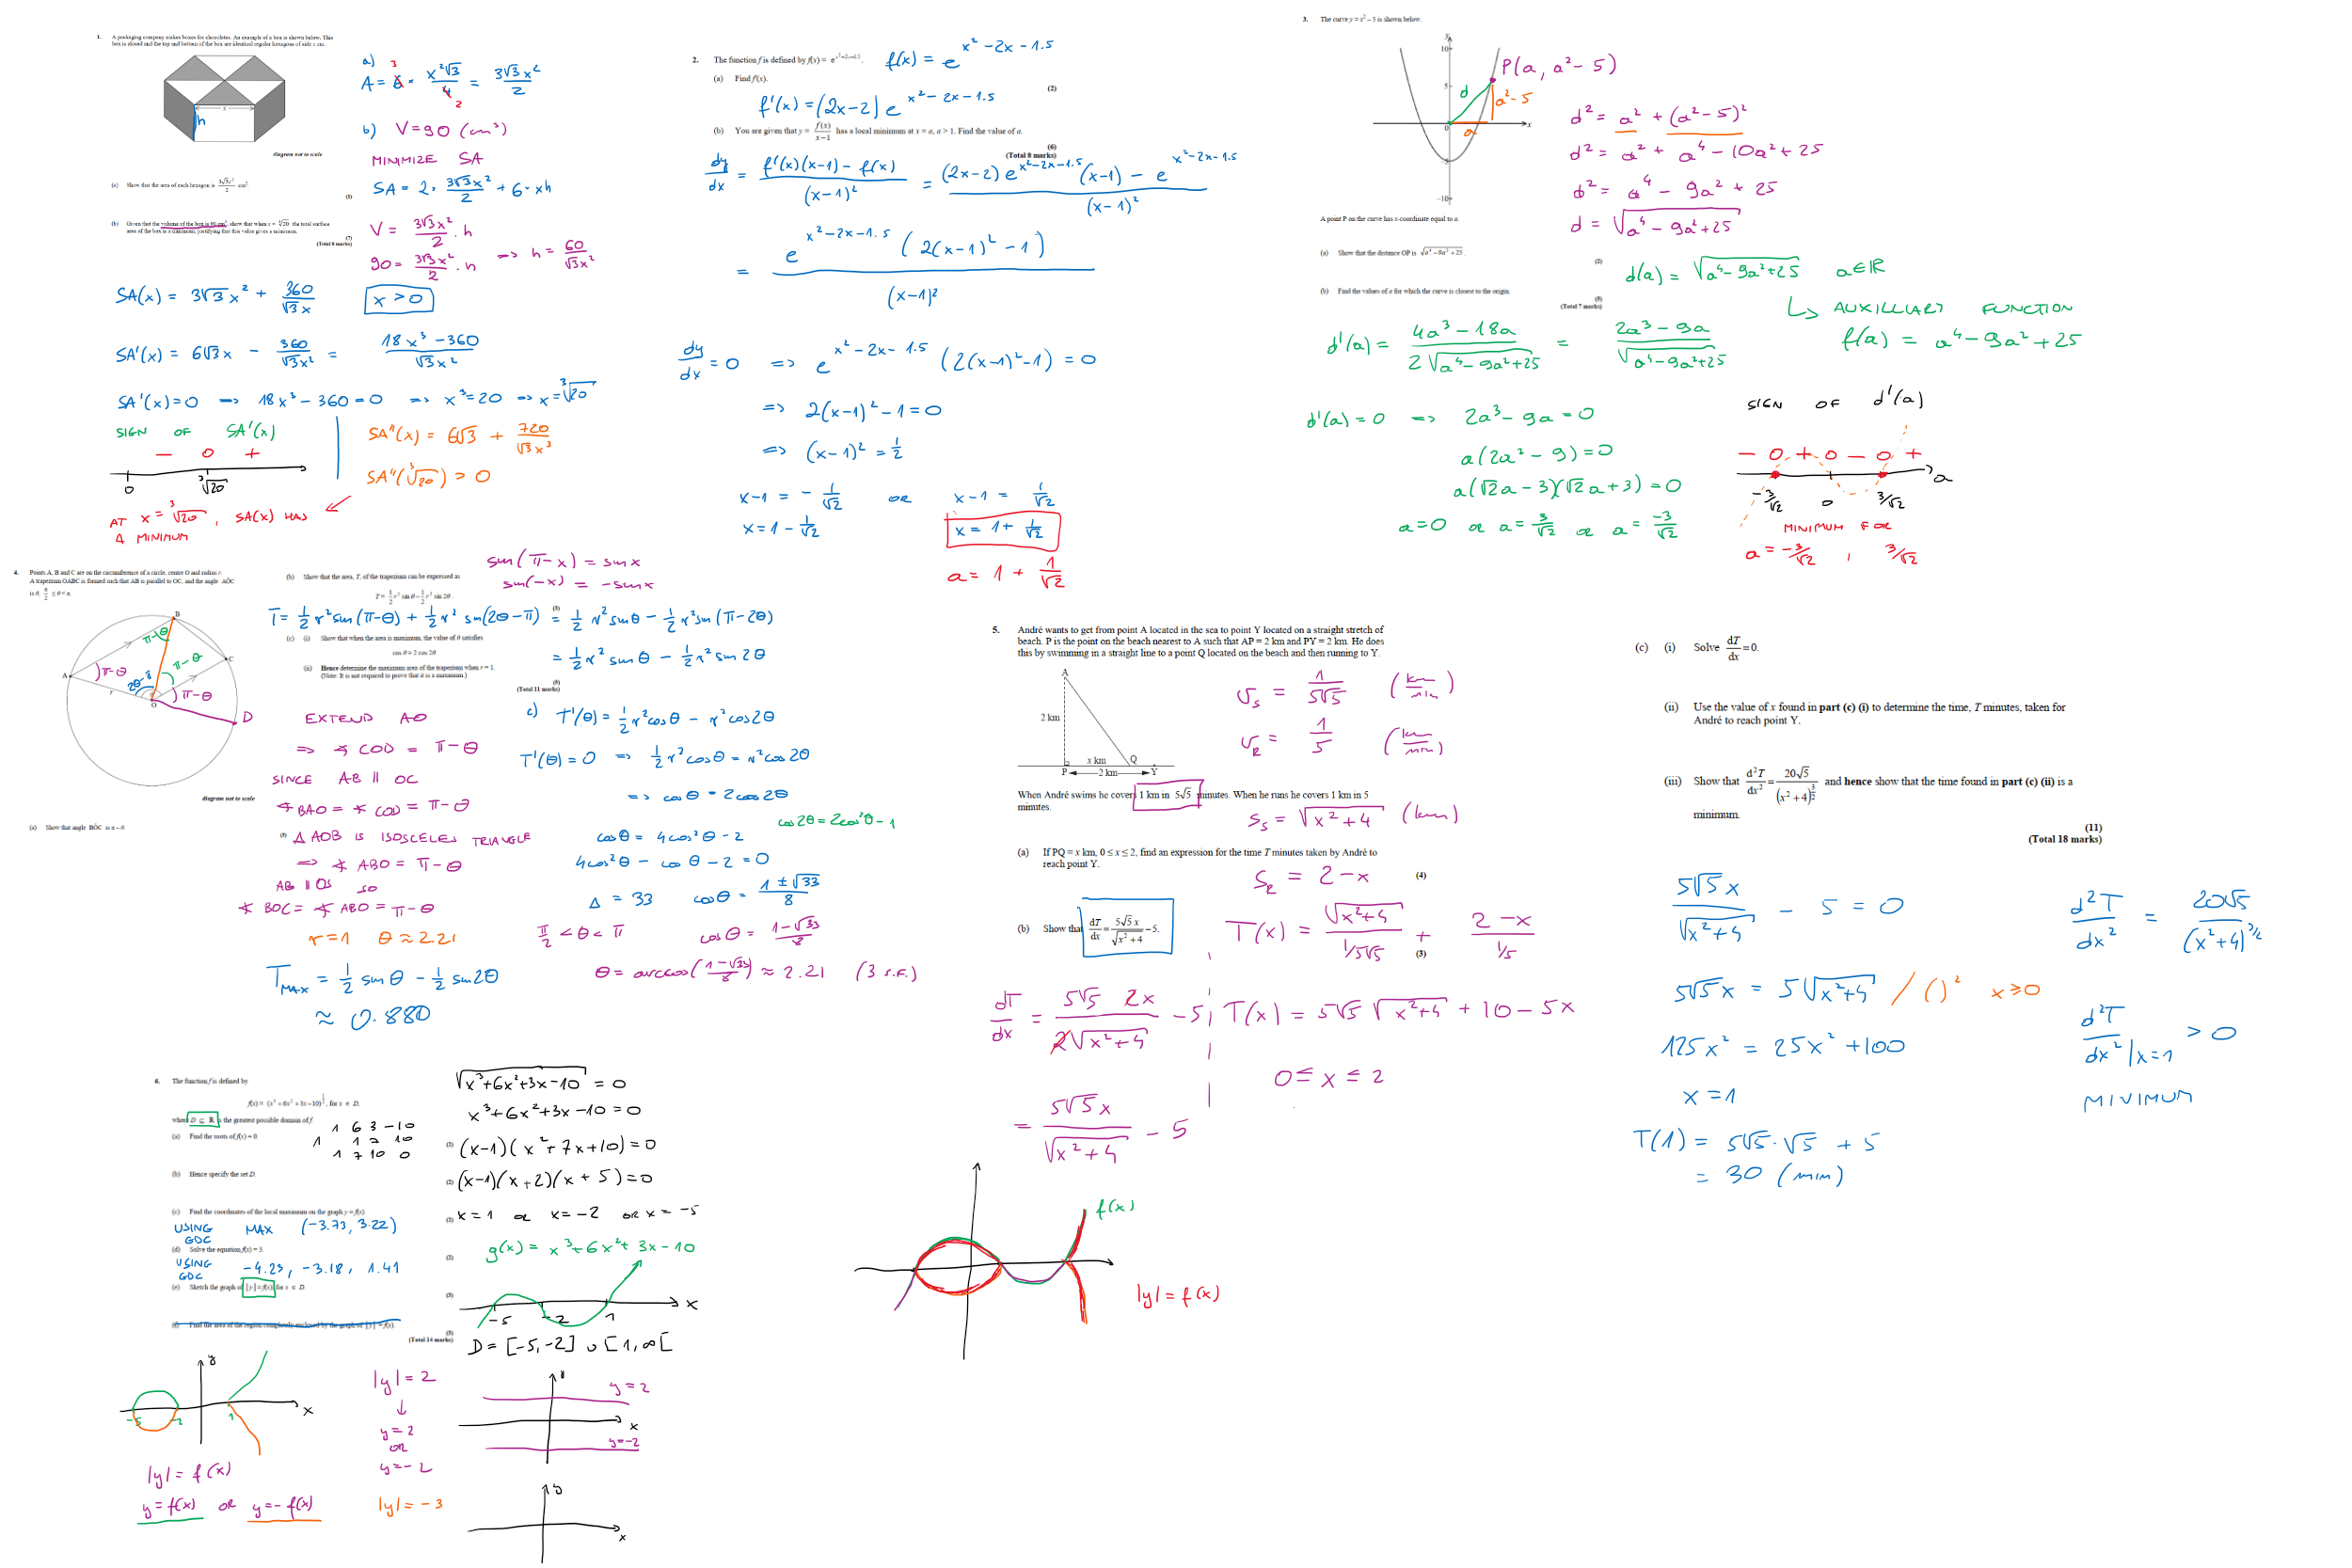 1. A packaging company makes boxes for chocolates. An example of a box is shown below. This
box is closed and the top and bottom of the box are identical regular hexagons of side x cm.
x
h
diagram not to scale
(a) Show that the area of each hexagon is 3√3x²/2 cm².
(1)
(b) Given that the volume of the box is 90 cm³, show that when x = ∛20 the total surface
area of the box is a minimum, justifying that this value gives a minimum.
(7)
(Total 8 marks)
a) A = 6 · x²√3/4 = 3√3x²/2
3
2
b) V=90 (cm³)
MINIMIZE SA
SA = 2 · 3√3x²/2 + 6 · xh
V = 3√3x²/2 · h
90 = 3√3x²/2 · h => h = 60/√3x²
SA(x) = 3√3x² + 360/√3x
x > 0
SA'(x) = 6√3x − 360/√3x² = 18x³ − 360/√3x²
SA'(x)=0 => 18x³ − 360 = 0 => x³=20 => x=∛20
SIGN OF SA'(x)
− 0 +
0 ∛20
SA"(x) = 6√3 + 720/√3x³
SA"(∛20) > 0
AT x = ∛20, SA(x) HAS
A MINIMUM
2. The function f is defined by f(x) = e^(x²−2x−1.5).
f(x) = e^(x²−2x−1.5)
(a) Find f'(x).
(2)
f'(x) = (2x−2) e^(x²−2x−1.5)
(b) You are given that y = f(x)/x−1 has a local minimum at x = a, a > 1. Find the value of a.
(6)
(Total 8 marks)
dy/dx = f'(x)(x−1) − f(x)/(x−1)² = (2x−2) e^(x²−2x−1.5) (x−1) − e^(x²−2x−1.5)/(x−1)²
= e^(x²−2x−1.5) (2(x−1)² − 1)/(x−1)²
dy/dx = 0 => e^(x²−2x−1.5) (2(x−1)²−1) = 0
=> 2(x−1)² − 1 = 0
=> (x−1)² = 1/2
x−1 = − 1/√2 OR x−1 = 1/√2
x = 1 − 1/√2 x = 1 + 1/√2
a = 1 + 1/√2
3. The curve y = x² − 5 is shown below.
y
10
5
0
x
−5
−10
P(a, a²−5)
d
a²−5
a
A point P on the curve has x-coordinate equal to a.
(a) Show that the distance OP is √a⁴ − 9a² + 25.
(2)
(b) Find the values of a for which the curve is closest to the origin.
(5)
(Total 7 marks)
d² = a² + (a²−5)²
d² = a² + a⁴ − 10a² + 25
d² = a⁴ − 9a² + 25
d = √a⁴ − 9a² + 25
d(a) = √a⁴−9a²+25 a∈ℝ
↳ AUXILLIARY FUNCTION
f(a) = a⁴−9a²+25
d'(a) = 4a³−18a/2√a⁴−9a²+25 = 2a³−9a/√a⁴−9a²+25
d'(a) = 0 => 2a³−9a = 0
a(2a²−9) = 0
a(√2a−3)(√2a+3) = 0
a=0 or a=3/√2 or a=−3/√2
SIGN OF d'(a)
− 0 + 0 − 0 +
−3/√2 0 3/√2 a
MINIMUM FOR
a = −3/√2, 3/√2
4. Points A, B and C are on the circumference of a circle, centre O and radius r.
A trapezium OABC is formed such that AB is parallel to OC, and the angle AÔC
is θ, π/2 ≤ θ < π.
B
C
A
O
D
r
π−θ
π−θ
π−θ
π−θ
2θ−π
diagram not to scale
(a) Show that angle BÔC is π − θ.
(3)
sin(π−x) = sin x
sin(−x) = −sin x
(b) Show that the area, T, of the trapezium can be expressed as
T = 1/2 r² sin θ − 1/2 r² sin 2θ.
(3)
T = 1/2 r² sin(π−θ) + 1/2 r² sin(2θ−π) = 1/2 r² sinθ − 1/2 r² sin(π−2θ)
= 1/2 r² sinθ − 1/2 r² sin2θ
(c) (i) Show that when the area is maximum, the value of θ satisfies
cos θ = 2 cos 2θ
(ii) Hence determine the maximum area of the trapezium when r = 1.
(Note: It is not required to prove that it is a maximum.)
(5)
(Total 11 marks)
EXTEND AO
=> ∢ COD = π−θ
SINCE AB || OC
∢ BAO = ∢ COD = π−θ
△ AOB IS ISOSCELES TRIANGLE
=> ∢ ABO = π−θ
AB || OC so
∢ BOC = ∢ ABO = π−θ
r=1 θ ≈ 2.21
T MAX = 1/2 sinθ − 1/2 sin2θ
≈ 0.880
c) T'(θ) = 1/2 r² cosθ − r² cos2θ
T'(θ) = 0 => 1/2 r² cosθ = r² cos2θ
=> cosθ = 2cos2θ
cos2θ = 2cos²θ−1
cosθ = 4cos²θ − 2
4cos²θ − cosθ − 2 = 0
Δ = 33 cosθ = 1±√33/8
π/2 < θ < π cosθ = 1−√33/8
θ = arccos(1−√33/8) ≈ 2.21 (3 s.f.)
5. André wants to get from point A located in the sea to point Y located on a straight stretch of
beach. P is the point on the beach nearest to A such that AP = 2 km and PY = 2 km. He does
this by swimming in a straight line to a point Q located on the beach and then running to Y.
A
2 km
x km Q
P 2 km Y
When André swims he covers 1 km in 5√5 minutes. When he runs he covers 1 km in 5
minutes.
v_S = 1/5√5 (km/min)
v_R = 1/5 (km/min)
s_S = √x²+4 (km)
(a) If PQ = x km, 0 ≤ x ≤ 2, find an expression for the time T minutes taken by André to
reach point Y.
(4)
s_R = 2−x
(b) Show that dT/dx = 5√5 x/√x²+4 − 5.
(3)
T(x) = √x²+4/1/5√5 + 2−x/1/5
T(x) = 5√5 √x²+4 + 10 − 5x
0 ≤ x ≤ 2
dT/dx = 5√5 2x/2√x²+4 − 5
= 5√5x/√x²+4 − 5
(c) (i) Solve dT/dx = 0.
(ii) Use the value of x found in part (c) (i) to determine the time, T minutes, taken for
André to reach point Y.
(iii) Show that d²T/dx² = 20√5/(x²+4)^(3/2) and hence show that the time found in part (c) (ii) is a
minimum.
(11)
(Total 18 marks)
5√5x/√x²+4 − 5 = 0
5√5x = 5√x²+4 / ()² x≥0
125x² = 25x² + 100
x = 1
T(1) = 5√5·√5 + 5
= 30 (min)
d²T/dx² = 20√5/(x²+4)^(3/2)
d²T/dx² |x=1 > 0
MINIMUM
6. The function f is defined by
f(x) = (x³ + 6x² + 3x − 10)^(1/2), for x ∈ D,
where D ⊆ ℝ is the greatest possible domain of f.
(a) Find the roots of f(x) = 0.
(2)
1 6 3 −10
1 1 7 10
1 7 10 0
(b) Hence specify the set D.
(2)
(c) Find the coordinates of the local maximum on the graph y = f(x).
(2)
USING GDC MAX (−3.73, 3.22)
(d) Solve the equation f(x) = 3.
(2)
USING GDC −4.23, −3.18, 1.41
(e) Sketch the graph of |y| = f(x), for x ∈ D.
(3)
(f) Find the area of the region completely enclosed by the graph of |y| = f(x).
(3)
(Total 14 marks)
√x³+6x²+3x−10 = 0
x³+6x²+3x−10 = 0
(x−1)(x²+7x+10) = 0
(x−1)(x+2)(x+5) = 0
x = 1 or x = −2 or x = −5
g(x) = x³+6x²+3x−10
−5 −2 1 x
D = [−5,−2] ∪ [1,∞[
f(x)
|y| = f(x)
y
−5 −2 1 x
|y| = f(x)
y = f(x) OR y = − f(x)
|y| = 2
↓
y = 2
OR
y = −2
|y| = −3
y
y = 2
x
y = −2
y
x